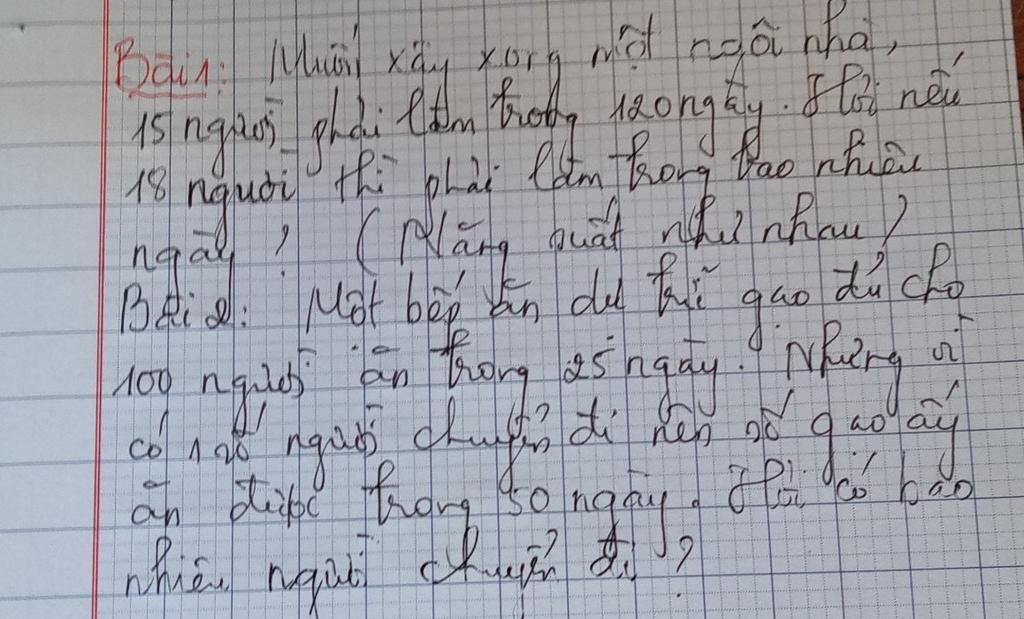 Bài 1: Muốn xây xong một ngôi nhà,
15 người phải làm trong 120 ngày. Hỏi nếu
18 người thì phải làm trong bao nhiêu
ngày ? (Năng suất như nhau)
Bài 2: Một bếp ăn dự trữ gạo đủ cho
100 người ăn trong 25 ngày. Nhưng vì
có 1 số người chuyển đi nên số gạo ấy
ăn được trong 50 ngày. Hỏi có bao
nhiêu người chuyển đi ?